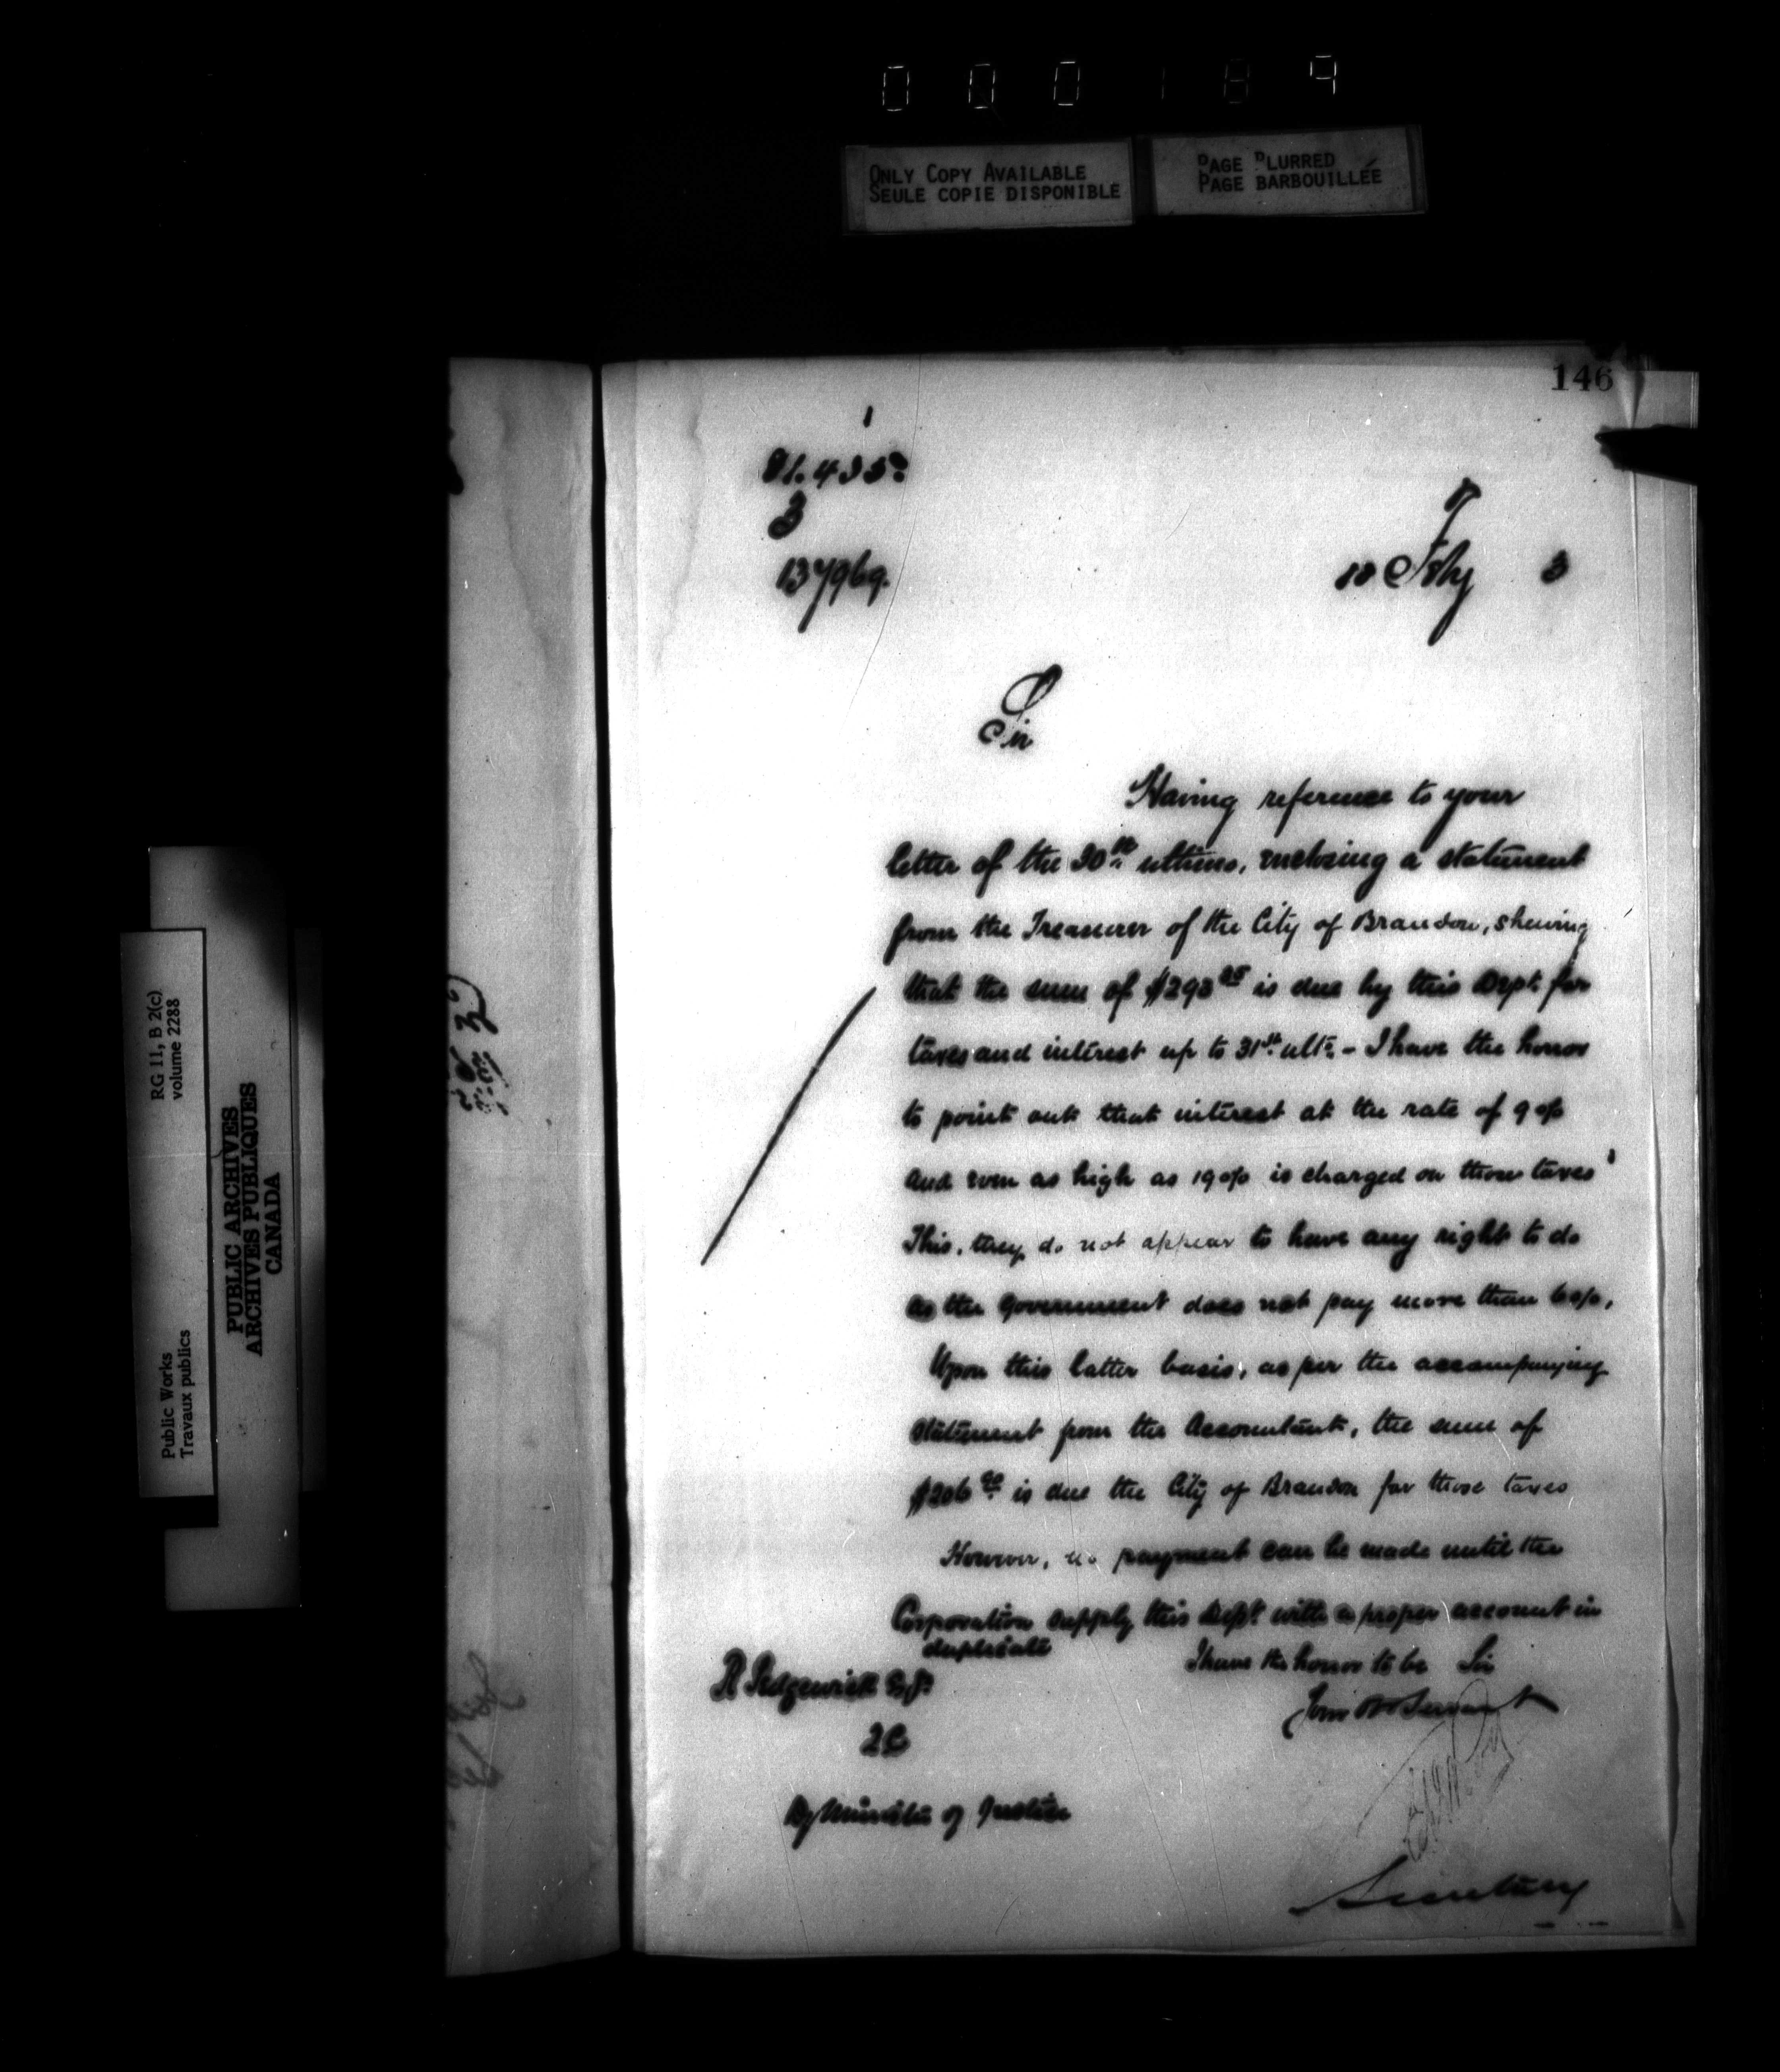 000189
ONLY COPY AVAILABLE
SEULE COPIE DISPONIBLE
PAGE BLURRED
PAGE BARBOUILLÉE
146
3
137969.
18 Feby 3
Sir
Having reference to your
letter of the 30th ultimo, enclosing a statement
from the Treasurer of the City of Brandon, shewing
that the sum of $293 is due by this Dept. for
taxes and interest up to 31st ulto. - I have the honor
to point out that interest at the rate of 9 o/o
and even as high as 19 o/o is charged on those taxes
This, they do not appear to have any right to do
as the Government does not pay more than 6 o/o,
Upon this latter basis, as per the accompanying
statement from the Accountant, the sum of
$206 is due the City of Brandon for those taxes
However, no payment can be made until the
Corporation supply this Dept. with a proper account in
duplicate
I have the honor to be Sir
R Sedgewick Esq.
Servant
Dy Minister of Justice
Secretary
RG 11, B 2(c)
volume 2288
Public Works
Travaux publics
PUBLIC ARCHIVES
ARCHIVES PUBLIQUES
CANADA